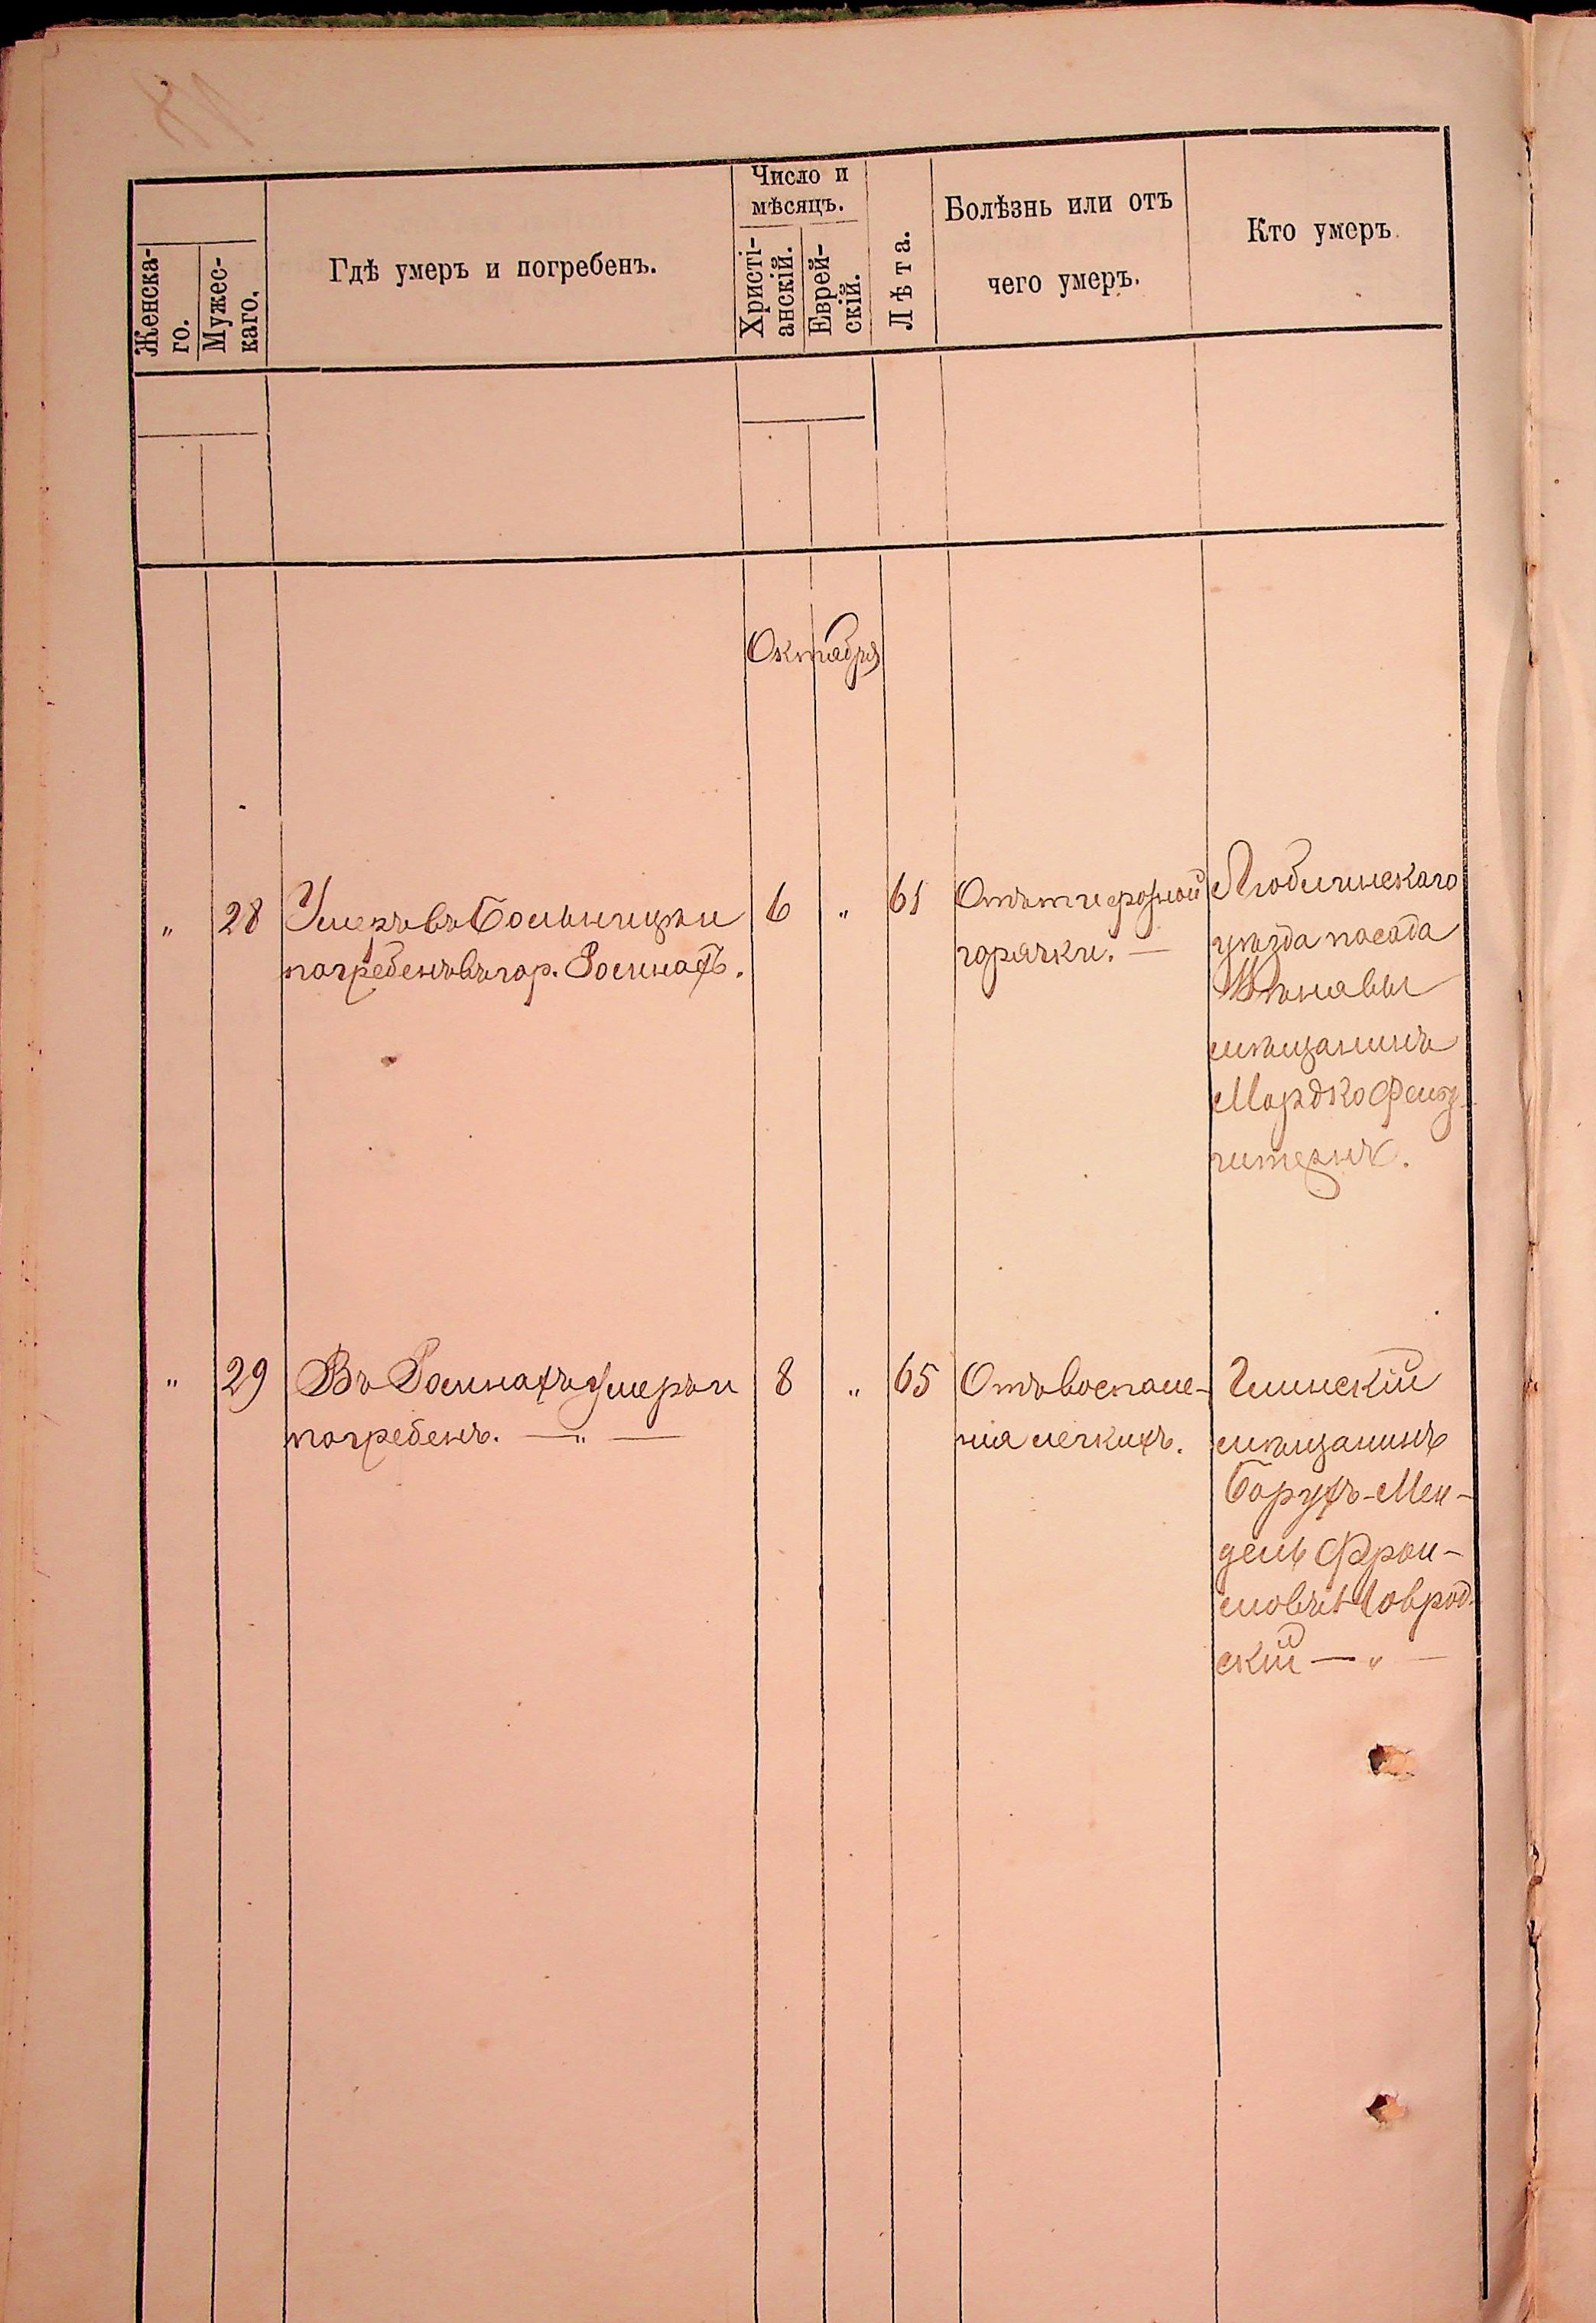 Женска-
го.
Мужес-
каго.
Гдѣ умеръ и погребенъ.
Число и
мѣсяцъ.
Христі-
анскій.
Еврей-
скій.
Лѣта.
Болѣзнь или отъ
чего умеръ.
Кто умеръ.
Октября
" 28
Умеръ въ Больницѣ и
погребенъ въ гор. Ромнахъ.
6 " 61
Отъ тифозной
горячки. —
уѣзда посада
мѣщанинъ
Мордко
" 29
Въ Ромнахъ умеръ и
погребенъ. — " —
8 " 65
Отъ воспале-
нія легкихъ.
Глинскій
мѣщанинъ
Борухъ-Мен-
дель
скій — " —